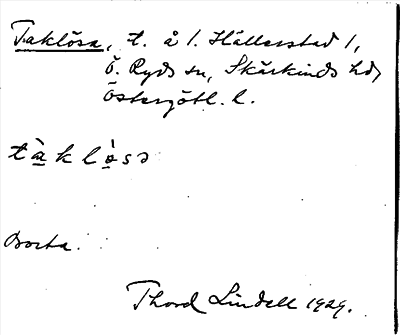 Taklösa, t. å 1. Hällerstad 1,
Ö. Ryds sn, Skärkinds hd,
Östergötl. l.
tàklòsə
Borta.
Thord Lindell 1929.